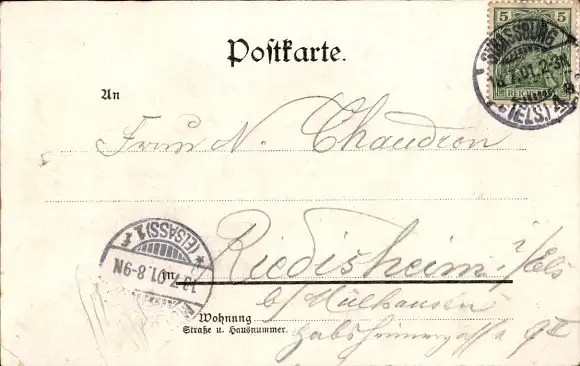 5 5
REICH
STRASSBURG
7.01.2-3N
(ELS.)
Postkarte.
An
Frau N. Chaudron
(ELSASS) 1 f
7.01.8-9N
in Riedisheim i/Els
b/ Mülhausen
Wohnung
Straße u. Hausnummer.